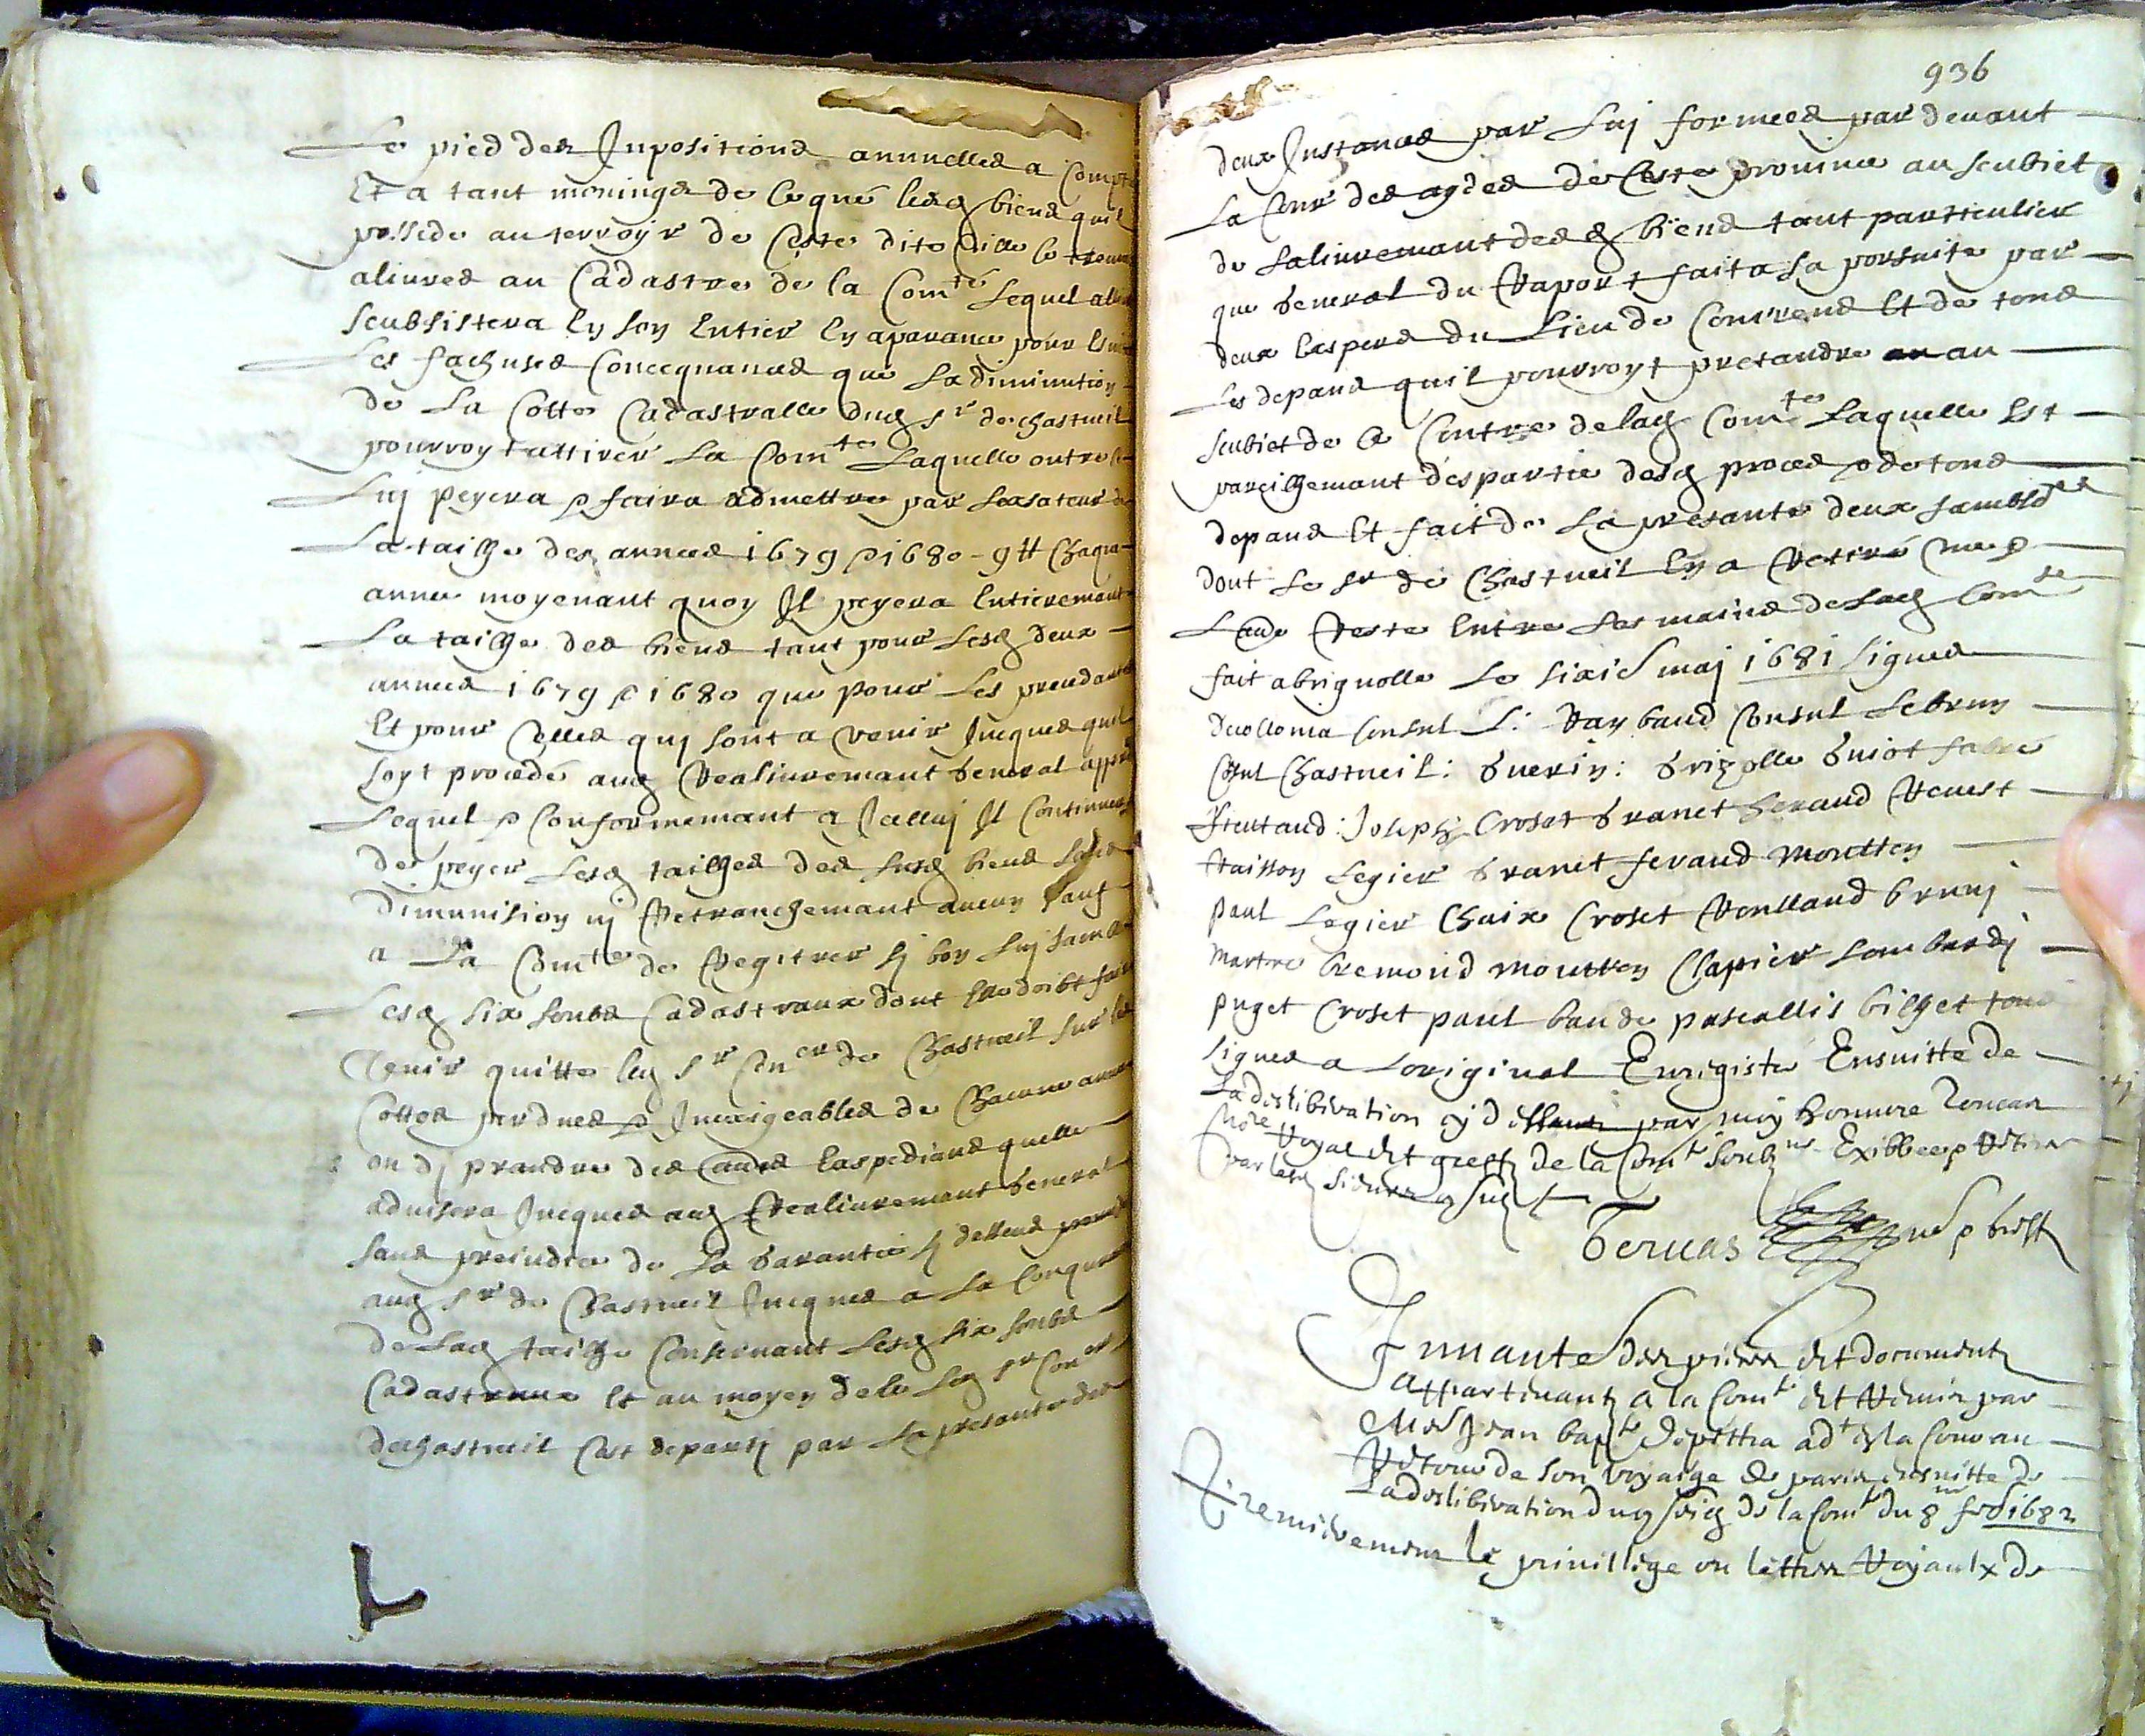 Le pied des Inpositions annuelles a Compte
Et a tant moningz de ce que lesd biens quil
possede au terroyr de Ceste dite Ville se treuve
alivres au Cadastre de la Comté Lequel
Scubsistera En son Entier En aparance pour
Les fachuses Concequances que La diminution
de La Cotte Cadastralle dud Sr de chastueil
pourroyt attirer La Comte Laquelle outre ce
Luj peyera & faira admettre par Lexsateur de
La tailhe des annees 1679 & 1680 - 9 tt Chaque
annee moyenant quoy Il peyera Entierement
La tailhe des biens tant pour Lesd deux
annees 1679 & 1680 que pour Les
Et pour Celles quj sont a venir Jucques quil
soyt procedé aud Realivremant general appres
Lequel & Conformemant a Icelluj Il Continuera
de peyer Lesd tailhes des susd biens sans
diminision nj Retranchemant aucun sauf
a La Comte de Regitrer sj bon Luj samble
Lesd six soubs Cadastraux dont Elle doibt faire
tenir quitte led Sr Coner de Chastueil sur les
Cottes perdues & Inexigeables de Chacune annee
ou dj prandre des autres Expediens quelle
advisera Jucques aud Realivremant general
sans prejudice de La garantie sj dessus
aud Sr de Chastueil Jucques a La Conqurance
de Lad tailhe Consernant Lesd six soubs
Cadastraux Et au moyen de ce Led Sr Coner
de chastueil Cest departj par La presante des
936
deux Instances par Luj formees par devant
La Cour des aydes de Ceste province au scubiet
de Lalivremant desd biens tant particulier
que general du Raport fait a sa porsuite par
deux Expers du Lieu de Correns Et de tous
Les depans quil pourroyt pretandre au
scubiet de ce Contre delad Comte Laquelle Est
pareilhemant despartie desd proces & de tous
depans Et fait de La presante deux sambles
dont Le Sr de Chastueil En a Retiré une &
Laude Reste Entre Les mains de Lad Comte
fait a brignolle Le sixie maj 1681 signes
Consul L: Raybaud Consul Lebrun
Chastueil: guerin: brigolle guiot fabre
Joseph Croset granet geraud Revest
Raisson Legier granet feraud Moutton
paul Legier Chaix Croset Roulland brunj
martre bremond moutton Clapier Lombardj
puget Croset paul baude pascallis bilhet tous
signes a Loriginal Enregistre Ensuitte de
La deslibération cy dessus par moy honnore
notre Royal Et greff de la Comte soubne Exibbee & Retiree
par lesd sieurs
Geruas
Inuante des pieces Et document
appartenantz a la Comte Et Remis par
Me Jean bapte ad En la Cour au
Retour de son voyaige de paris Ensuitte de
La deslibération du de la Comte du 8 1682
Premierement le privillege ou lettres Royaulx de